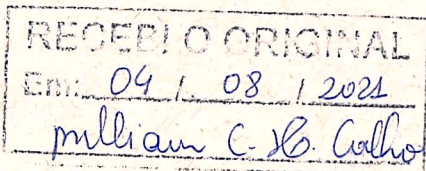 RECEBI O ORIGINAL
Em: 04 / 08 / 2021
William C. H. Colho